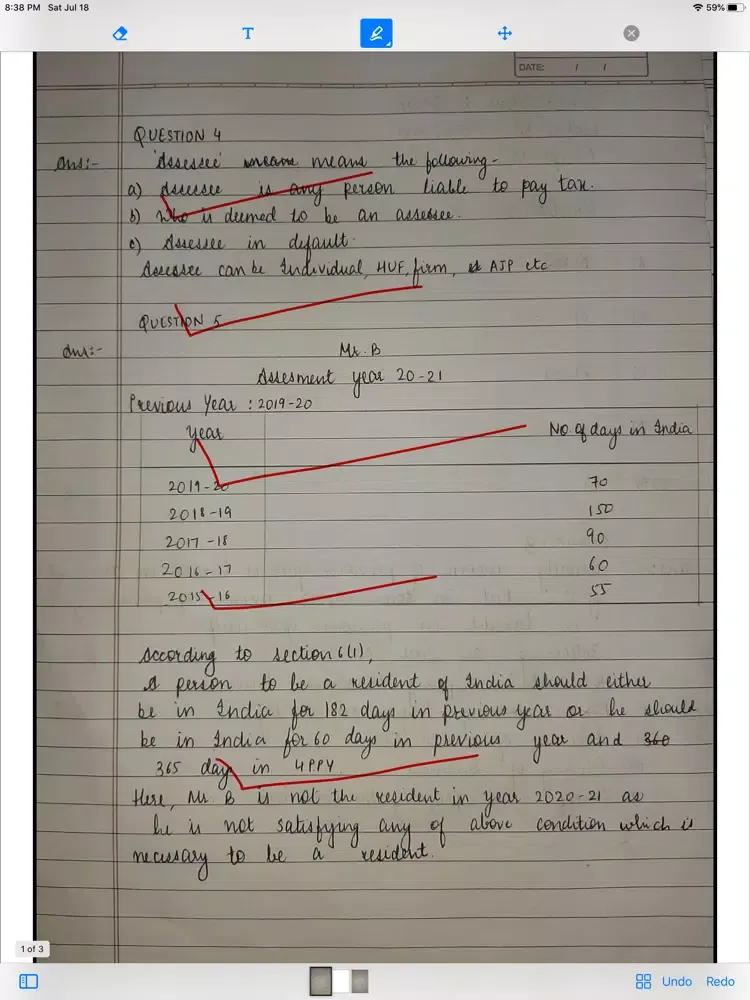 8:38 PM Sat Jul 18
59%
T
DATE: / /
QUESTION 4
Ans:- 'Assessee' means the following -
a) Assessee is any person liable to pay tax.
b) Who is deemed to be an assessee.
c) Assessee in default.
Assessee can be Individual, HUF, firm, AJP etc
QUESTION 5
Ans:- Mr. B
Assesment year 20-21
Previous Year : 2019-20
Year No of days in India
2019-20 70
2018-19 150
2017-18 90
2016-17 60
2015-16 55
According to section 6(1),
A person to be a resident of India should either
be in India for 182 days in previous year or he should
be in India for 60 days in previous year and 360
365 day in 4PPY.
Here, Mr. B is not the resident in year 2020-21 as
he is not satisfying any of above condition which is
necessary to be a resident.
1 of 3
Undo Redo